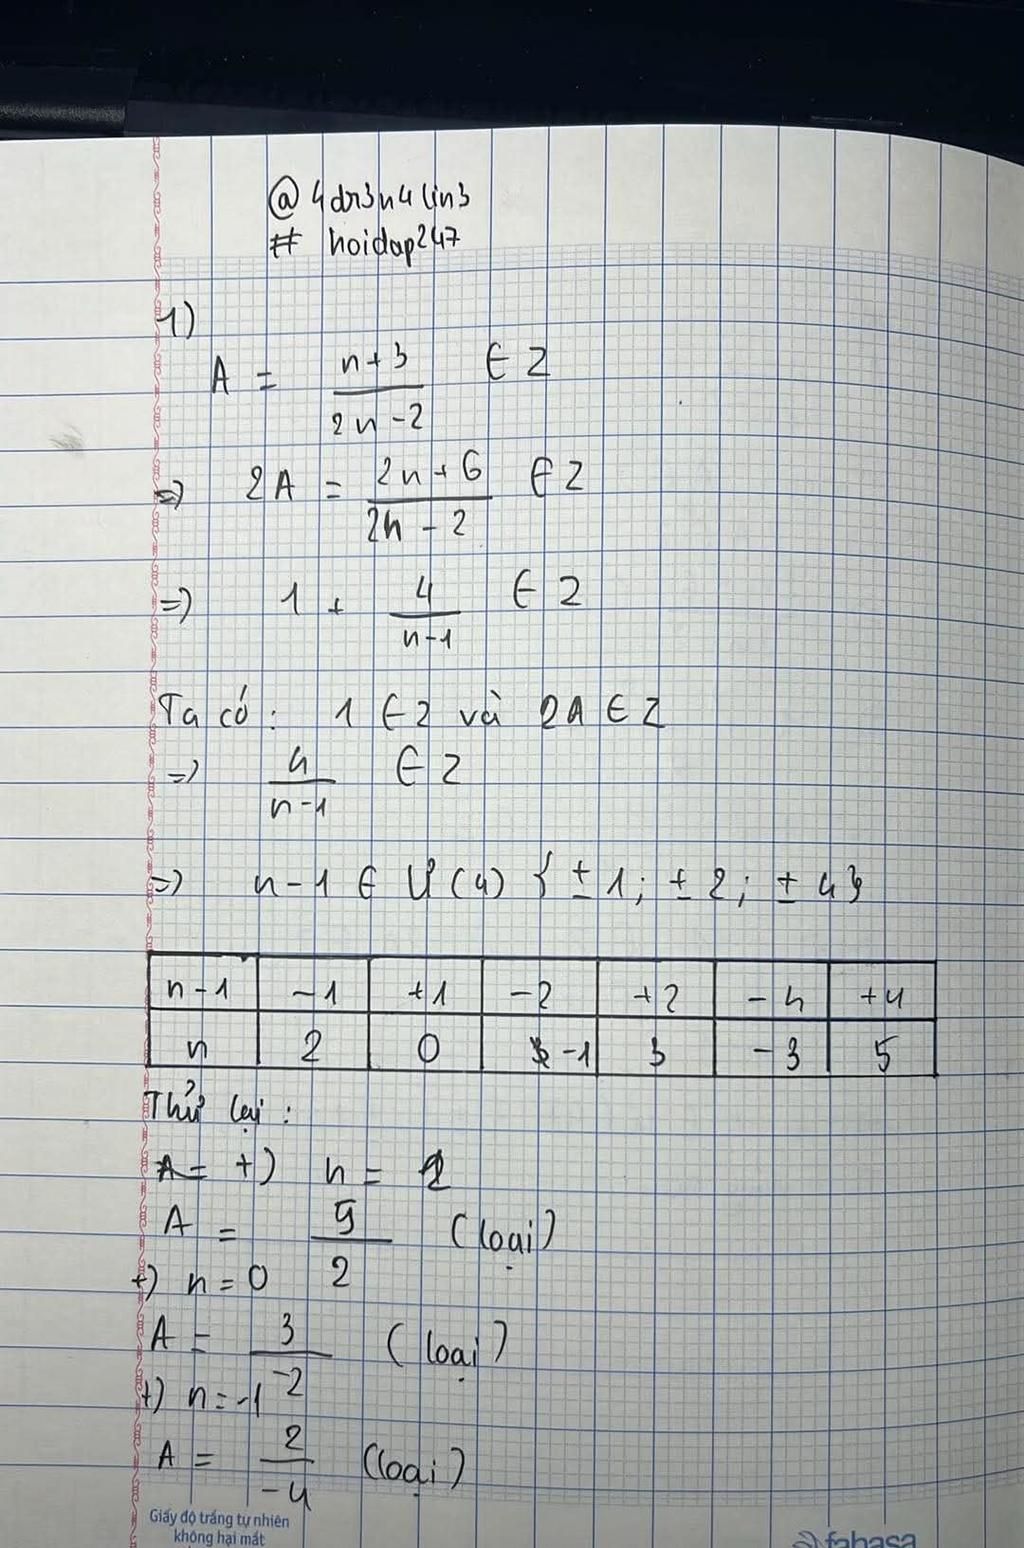 @4dr3n4lin3
# hoidap247
1)
A = n+3 / 2n-2 ∈ Z
=> 2A = 2n+6 / 2n-2 ∈ Z
=> 1 + 4 / n-1 ∈ Z
Ta có: 1 ∈ Z và 2A ∈ Z
=> 4 / n-1 ∈ Z
=> n-1 ∈ Ư(4) { ±1; ±2; ±4}
n-1 -1 +1 -2 +2 -4 +4
n 2 0 -1 3 -3 5
Thử lại:
A = +) n = 2
A = 5 / 2 (loại)
+) n = 0
A = 3 / -2 (loại)
+) n = -1
A = 2 / -4 (loại)
Giấy độ trắng tự nhiên
không hại mắt
fahasa